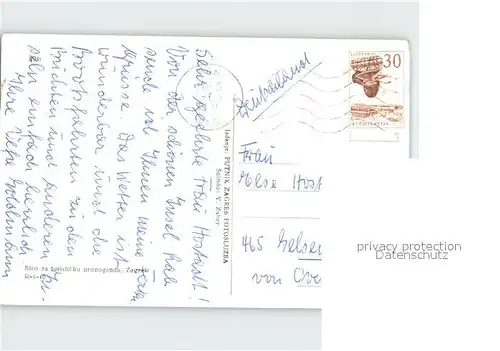 Sehr geehrte Frau Hostadt!
Von der schönen Insel Rab
sende ich Ihnen meine
Grüsse Das Wetter ist
wunderbar und die
Bootsfahrten zu den
Buchten und anderen
sehr einfach herrlich
Ihre
Biro za turističku propagandu, Zagreb
Izdanje: PUTNIK ZAGREB FOTOSLUŽBA
Snimio: V. Zuber
Deutschland
30
JUGOSLAVIJA
Frau
Else Host
465 Gelsen
von Ove
privacy protection
Datenschutz